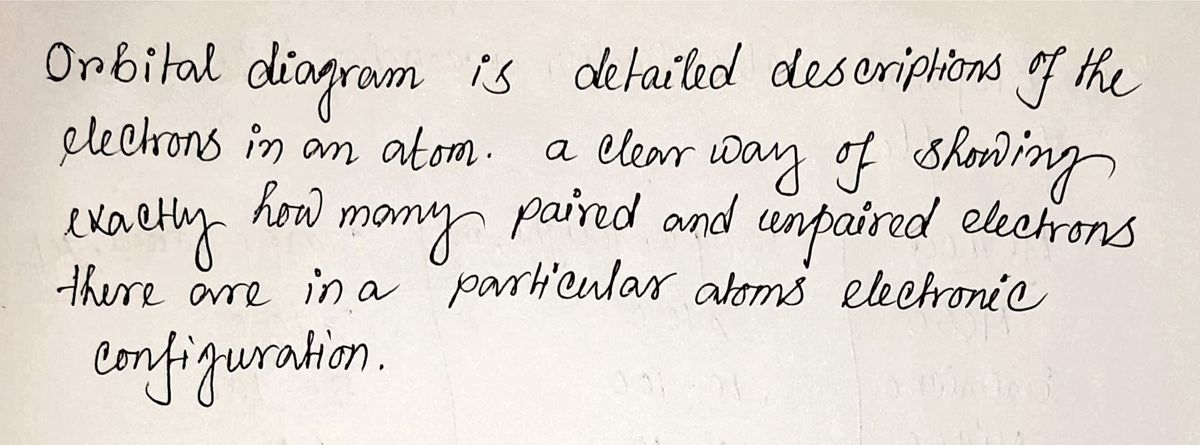 Orbital diagram is detailed descriptions of the
electrons in an atom. a clear way of showing
exactly how many paired and unpaired electrons
there are in a particular atoms electronic
configuration.